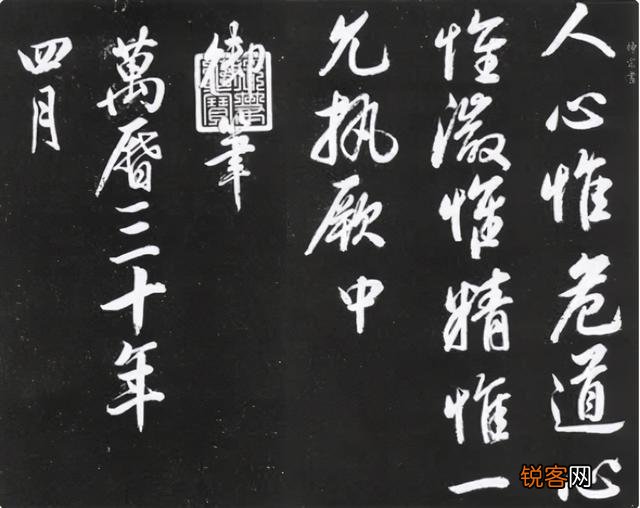 人心惟危道心
惟微惟精惟一
允執厥中
御筆
萬曆三十年
四月
神宗書
锐客网